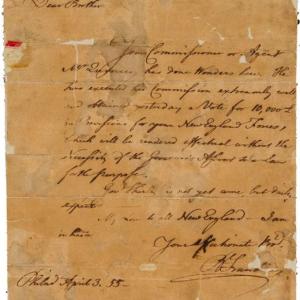 Dear Brother
Your Commissioner or Agent
Mr Quincy, has done Wonders here. He
has executed his Commission extreamly well
and obtained yesterday a Vote for 10,000£
in Provisions for your New England Forces,
which will be rendered effectual without the
necessity of the Governor's Assent to a Law
for the purpose.
Gov Shirley is not yet come but daily
expected
My Love to all New England I am
in haste
Your Affectionate Bror
Philad April 3. 55